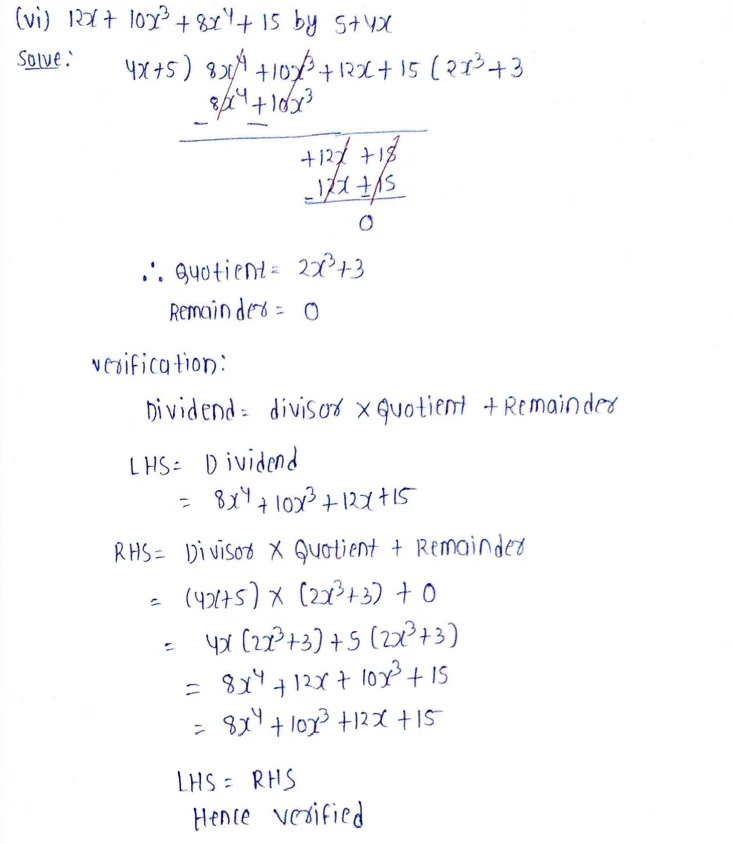 (vi) 12x + 10x³ + 8x⁴ + 15 by 5+4x
Solve:
4x+5) 8x⁴ + 10x³ + 12x + 15 (2x³+3
8x⁴ + 10x³
− −
+12x + 15
12x + 15
− −
0
∴ Quotient = 2x³+3
Remainder = 0
verification:
Dividend = divisor × Quotient + Remainder
LHS = Dividend
= 8x⁴ + 10x³ + 12x + 15
RHS = Divisor × Quotient + Remainder
= (4x+5) × (2x³+3) + 0
= 4x (2x³+3) + 5 (2x³+3)
= 8x⁴ + 12x + 10x³ + 15
= 8x⁴ + 10x³ + 12x + 15
LHS = RHS
Hence verified